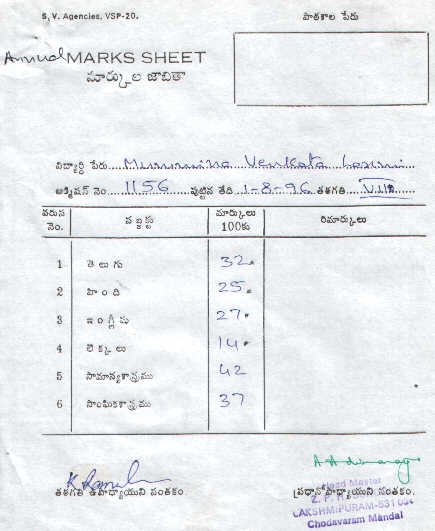 S. V. Agencies, VSP-20.
పాఠశాల పేరు
Annual MARKS SHEET
మార్కుల జాబితా
విద్యార్థి పేరు Venkata
అడ్మిషన్ నెం. 1156 పుట్టిన తేది 1-8-96 తరగతి VII
వరుస నెం. సబ్జక్టు మార్కులు 100కు రిమార్కులు
1 తెలుగు 32.
2 హింది 25.
3 ఇంగ్లీషు 27.
4 లెక్కలు 14.
5 సామాన్యశాస్త్రము 42
6 సాంఘికశాస్త్రము 37
తరగతి ఉపాధ్యాయుని సంతకం.
ప్రధానోపాధ్యాయుని సంతకం.
Head Master
Z. P. H.
LAKSHMIPURAM-531
Chodavaram Mandal